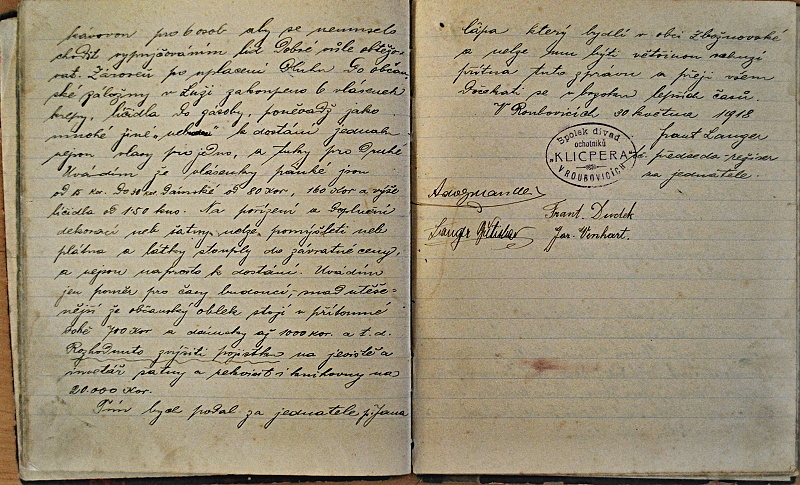 pro 6 osob aby se nemuselo
chodit vypujčováním lidi dobré vůle obtěžo-
vat. Zároveň po uplacení Dluhu do občan-
ské záložny v Luži zakoupeno 6 vlásenek
krepy, líčidla do zásoby, poněvadž jako
mnohé jiné k dostání jednak
nejsou vlasy pro jedno, a tuky pro Druhé
Uvádím že vlásenky pánské jsou
od 15 kor. Do 30 kor Dámské od 80 kor, 160 kor a výše
líčidla od 1·50 kus. Na pořízení a Doplnění
dekorací neb šatny nelze pomýšleti neb
plátna a látky stouply do závratné ceny,
a nejsou naprosto k dostání. Uvádím
jen poměr pro časy budoucí, snad utěše-
nější že občanský oblek stojí v přítomné
době 700 kor a dámský až 1000 kor. a t. d.
Rozhodnuto zvýšiti pojistku na jeviště a
inventář šatny a rekvisit i knihovny na
20.000 kor.
Tím bych podal za jednatele p. Jana
který bydlí v obci Zbožnovské
a nelze mu býti většinou
přítna tuto zprávu a přeji všem
Dočkati se lepších časů.
V Roubovicích 30 května 1918
Frant Langer
předseda-režiser
za jednatele.
Spolek divad.
ochotníků
„KLICPERA“
V ROUBOVICÍCH
Frant. Dudek
Jar. Vinhart.